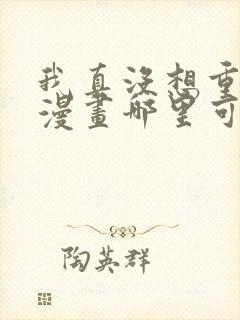 我真没想重
漫画哪里可
陶英群